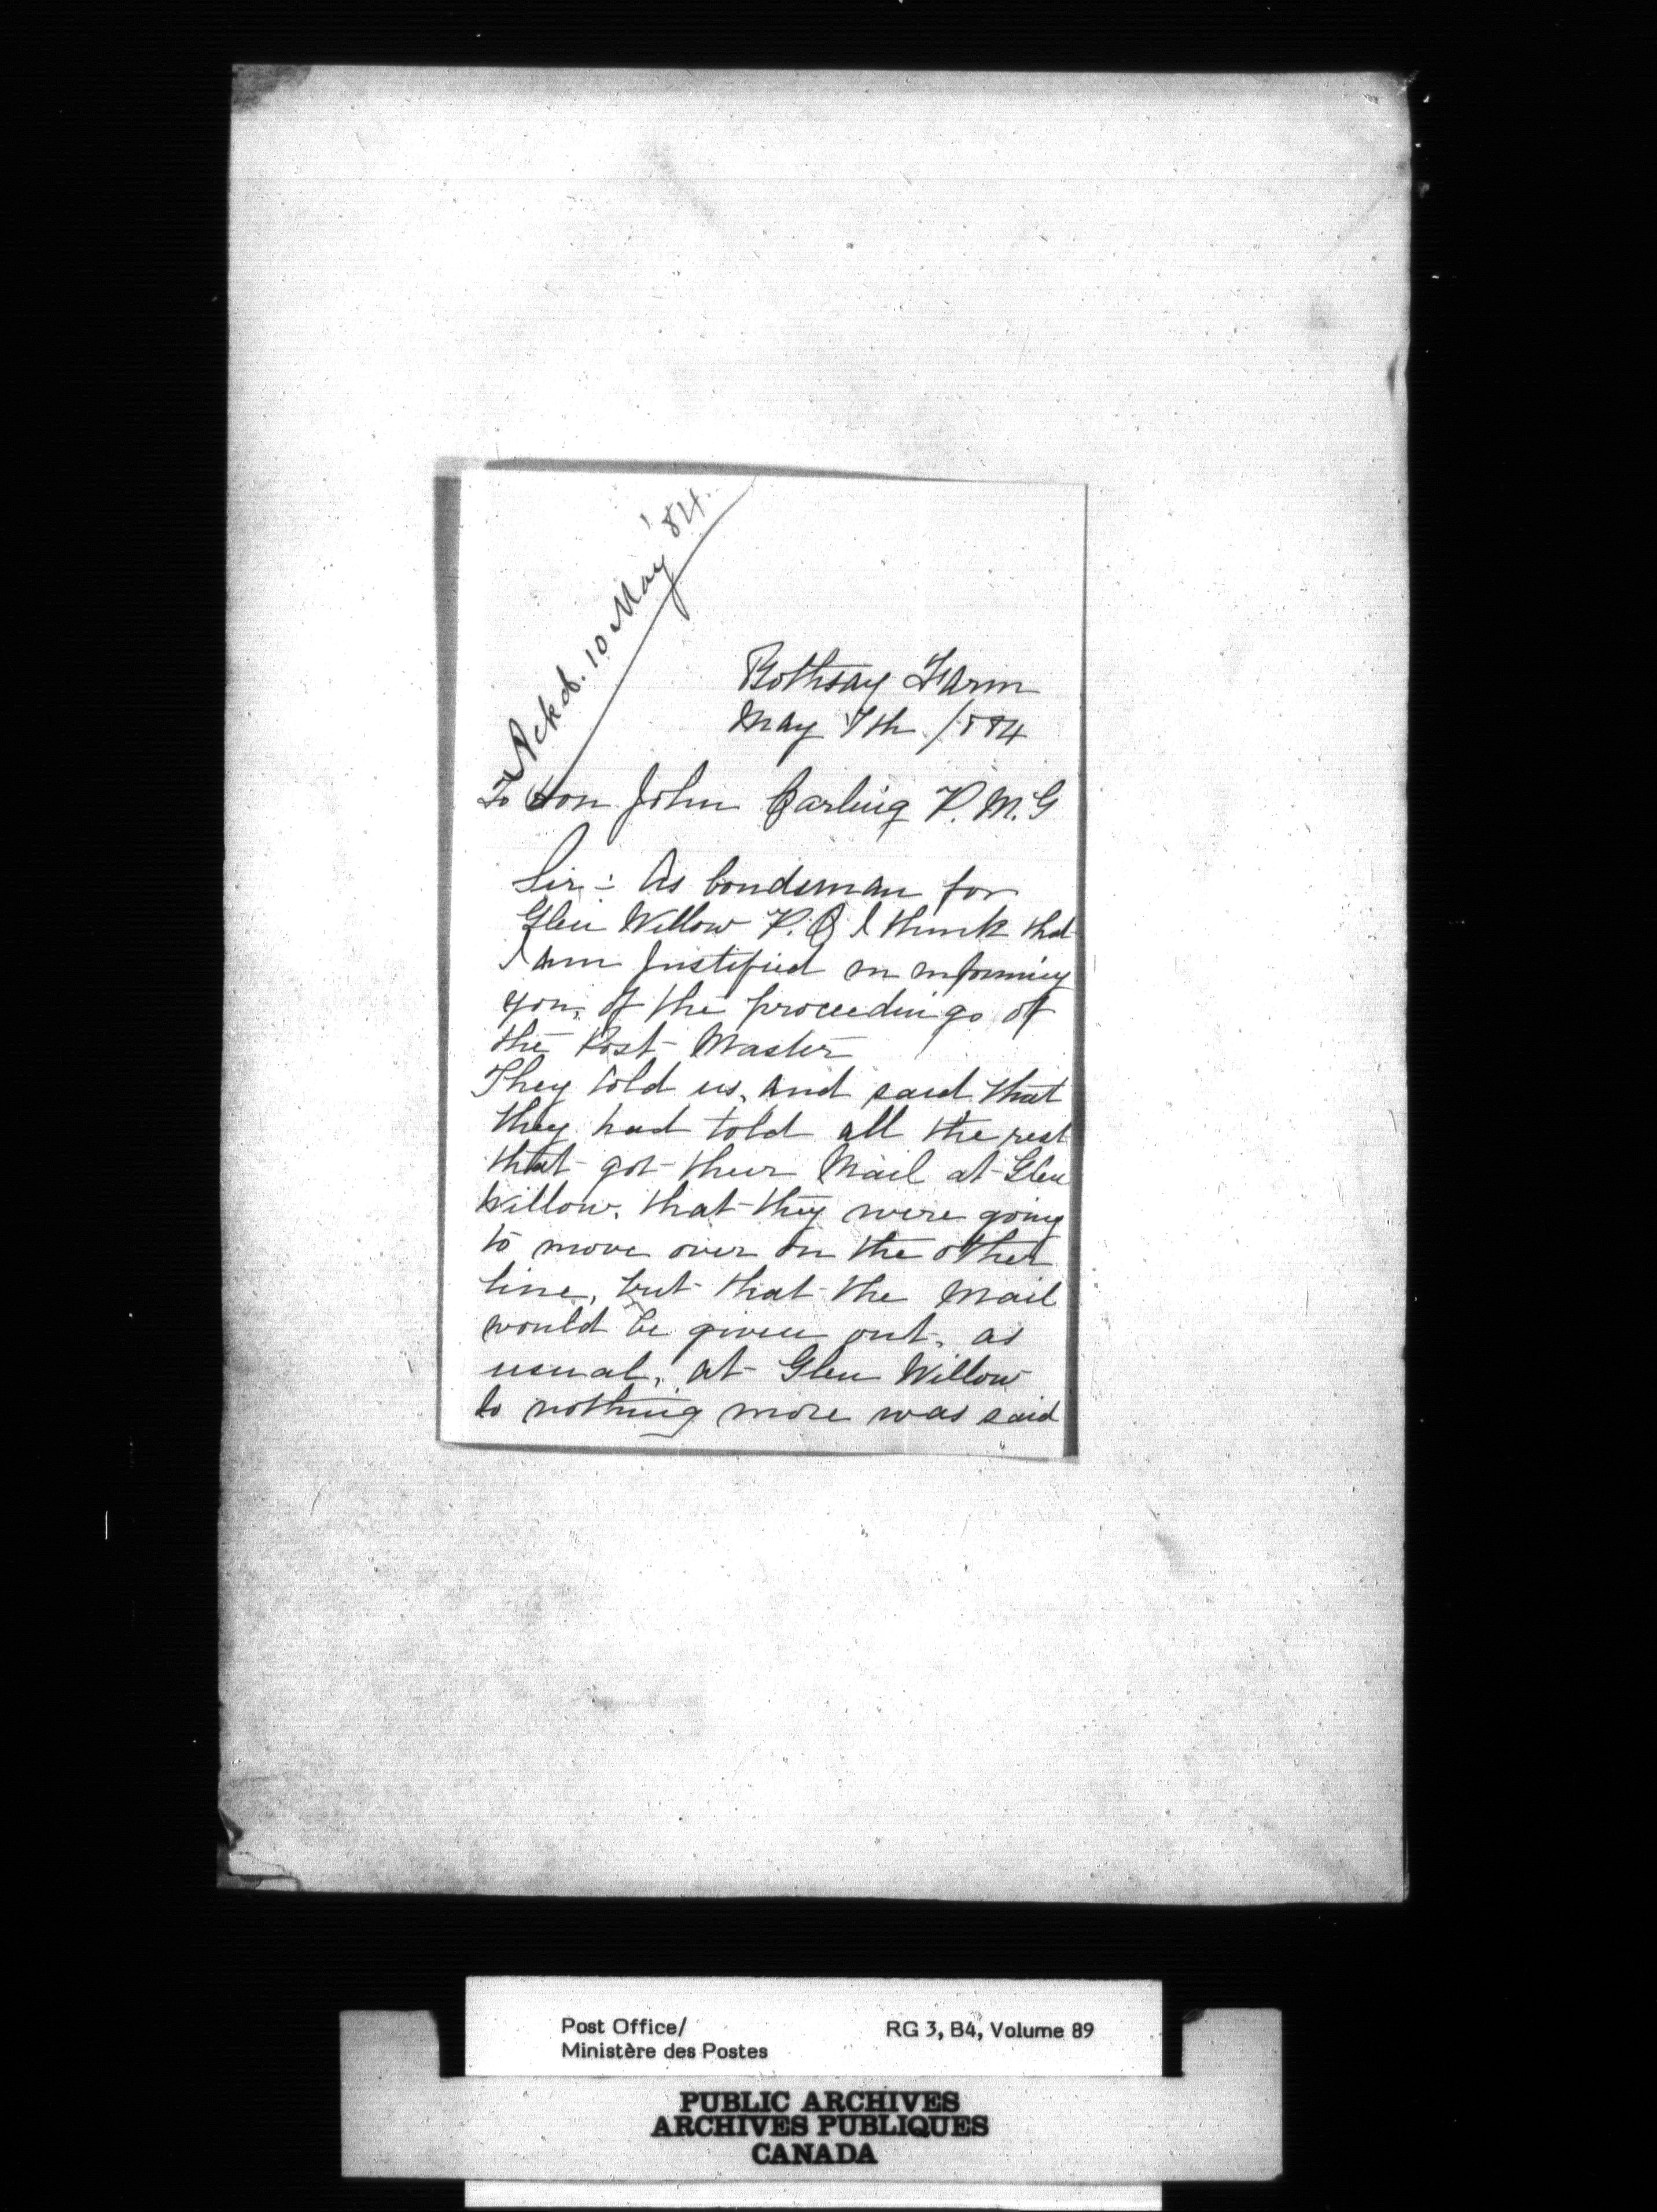 Ackd. 10 May '84.
Rothsay Farm
May 7th /884
To Hon John Carling P.M.G
Sir:- As bondsman for
Glen Willow P.O I think that
I am justified in informing
you, of the proceedings of
the Post Master
They told us, and said that
they had told all the rest
that got their Mail at Glen
Willow. that they were going
to move over on the other
line, but that the Mail
would be given out, as
usual, at Glen Willow
so nothing more was said
Post Office/
Ministère des Postes
RG 3, B4, Volume 89
PUBLIC ARCHIVES
ARCHIVES PUBLIQUES
CANADA